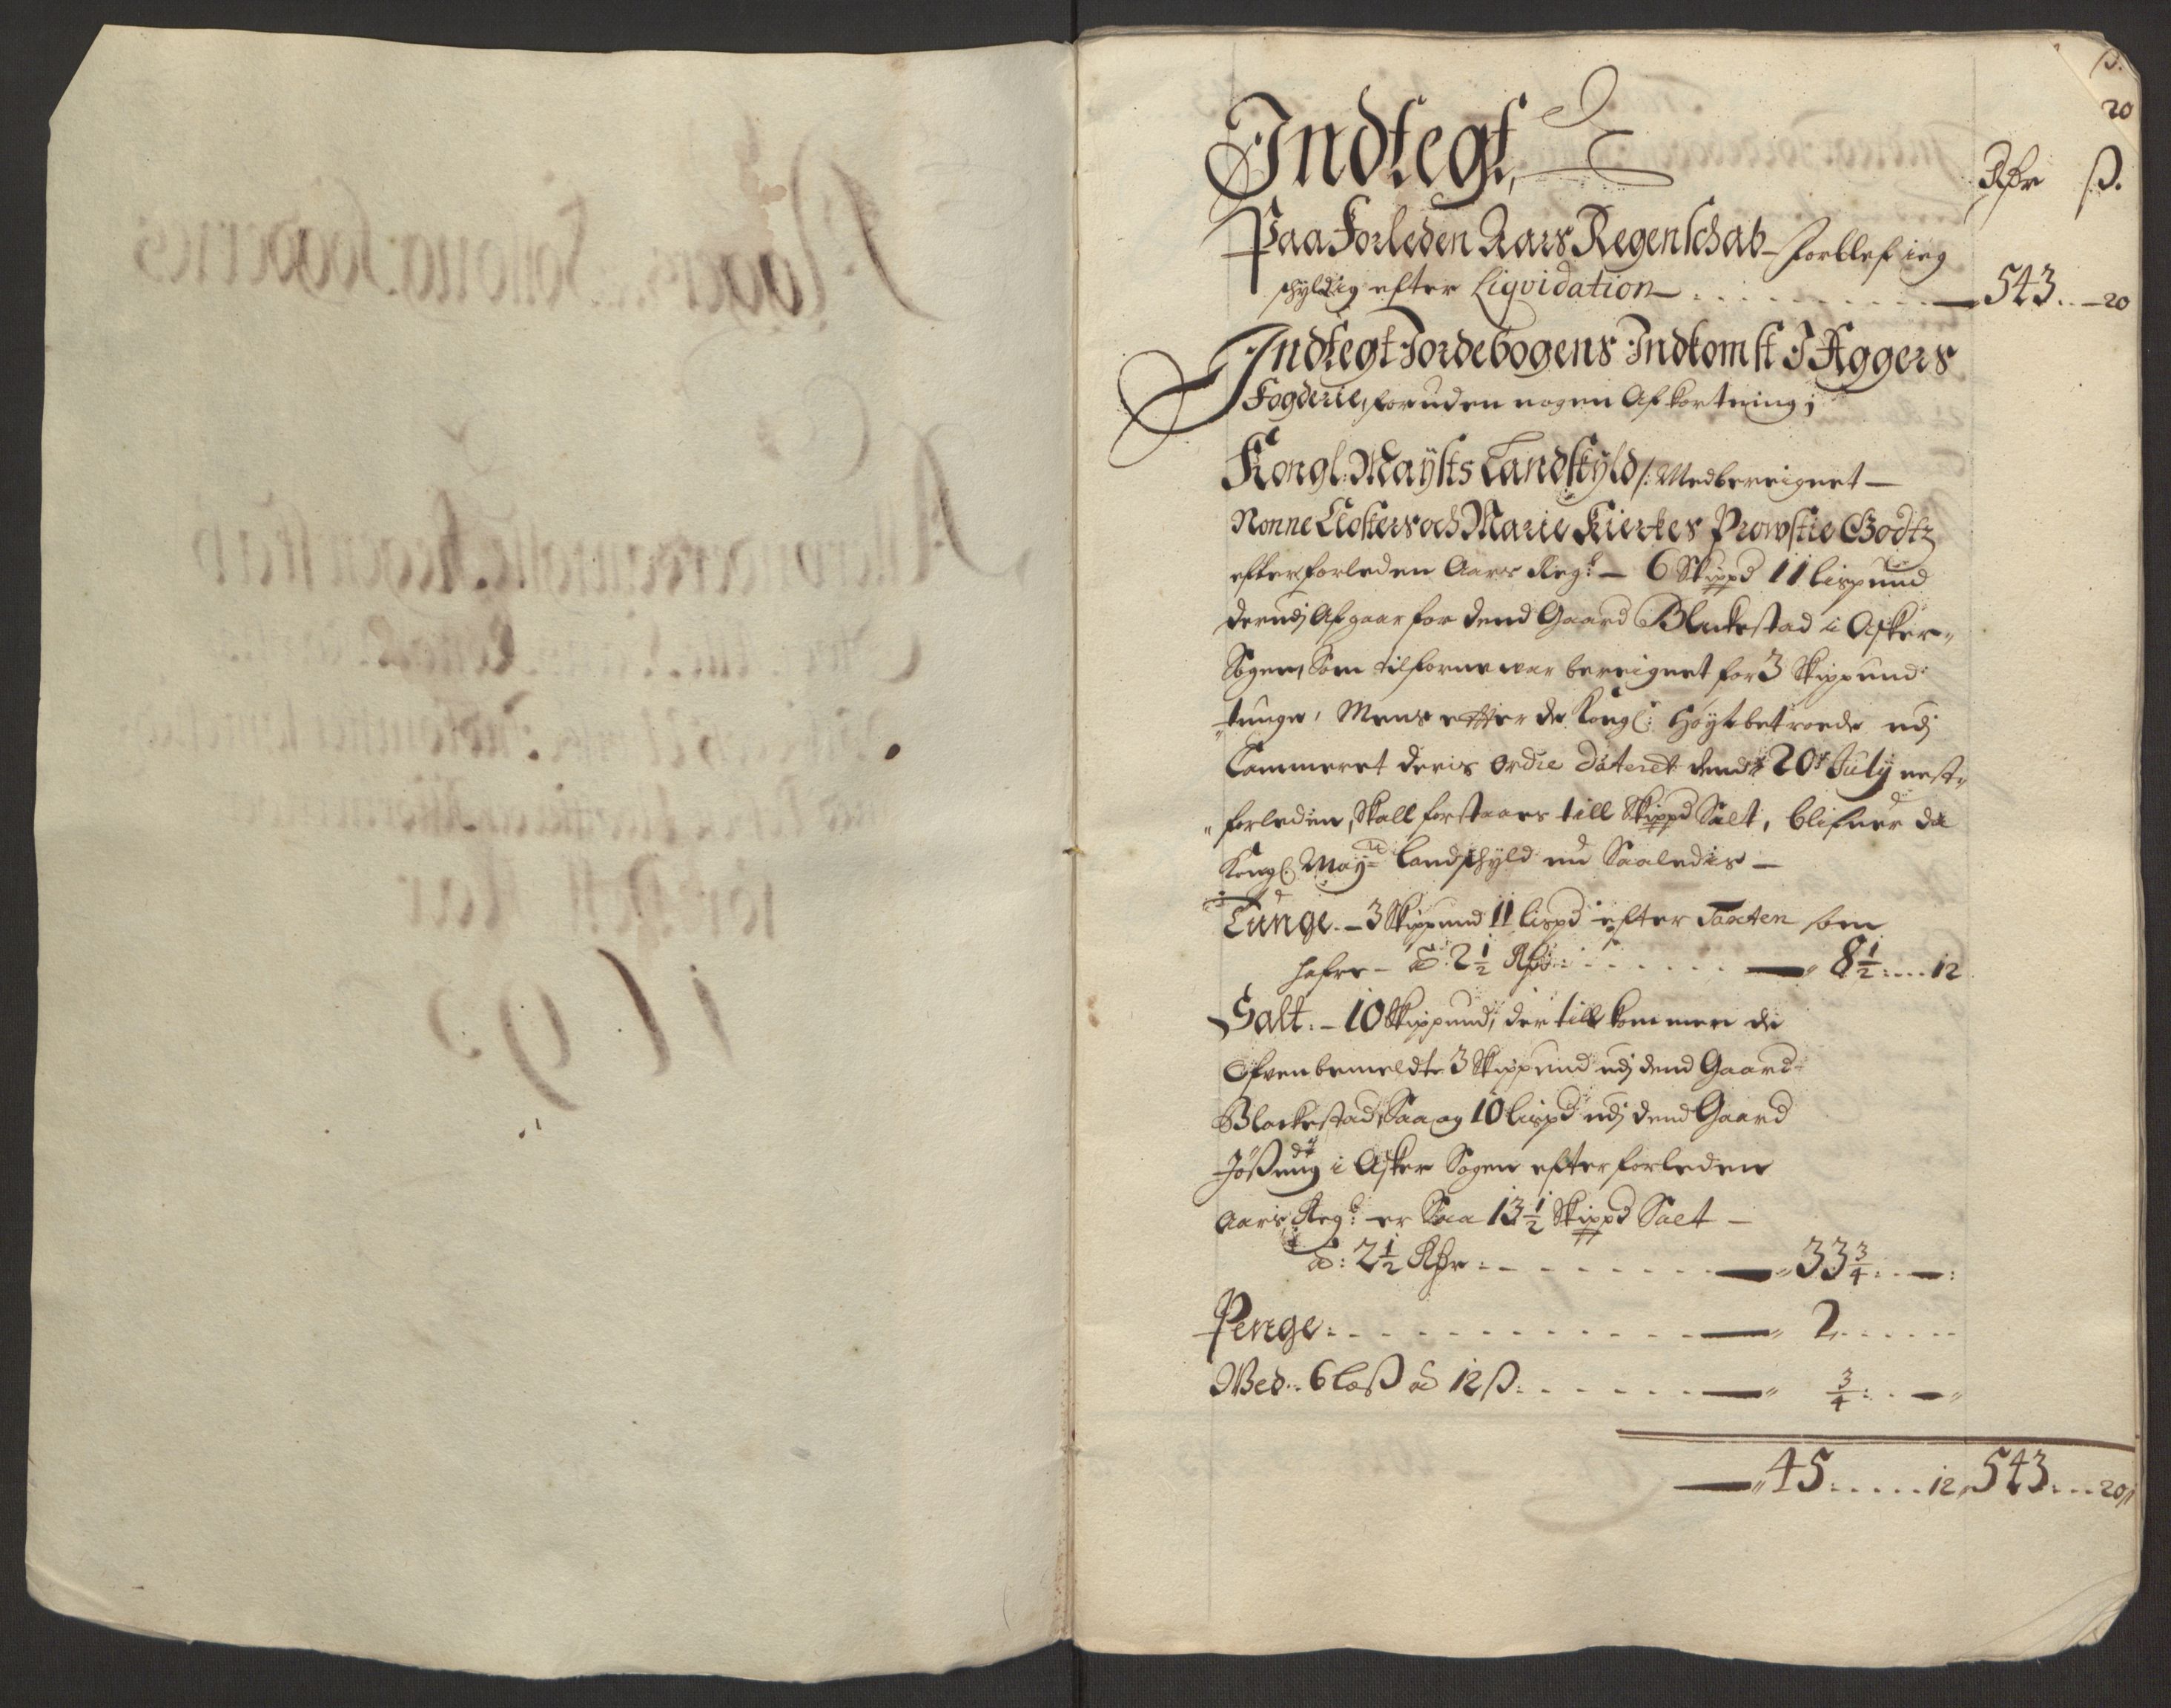 Indtegt,
Rdr ß.
Paa Forleden Aars Regenschab forblef ieg
schyldig efter Liqvidation — 543 – 20
Indtegt Jordebogens Indkomst I Aggers
Fogderie, foruden nogen Afkortning;
Kongl: Maÿsts Landskÿld /: Medbereignet —
Nonne Closters och Marie Kierkes Prowstie Godtz
efter forleden Aars Reg: — 6 Skippd 11 lispund
derudj Afgaar for dend Gaard Blackestad i Asker
Sogen, Som tilforne war bereignet for 3 Skippund
tunge, Mens efter de Kongl: Høyt betroede udj
Cammeret deris ordre Dateret dend 20 Julÿ nest
forleden, Skall forstaaes till Skippd Salt, blifuer da
Kongl: May: landschyld nu Saaledis —
Tunge. – 3 Skippund 11 lispd efter Taxten som
hafre – a 2 1/2 Rdr: — 8 1/2: 12
Salt: – 10 Skippund, der till kommer de
Ofvenbemeldte 3 Skippund udj dend Gaard
Blackestad, Saa og 10 lispd udj dend Gaard
Jøßung i Asker Sogen efter forleden
Aars Reg: er Saa 13 1/2 Skippd Salt –
a: 2 1/2 Rdr: — 33 3/4: —:
Penge: — 2
Wed: 6 læß a 12 ß: — 3/4: —
— 45: 12 543 20
ß.
20